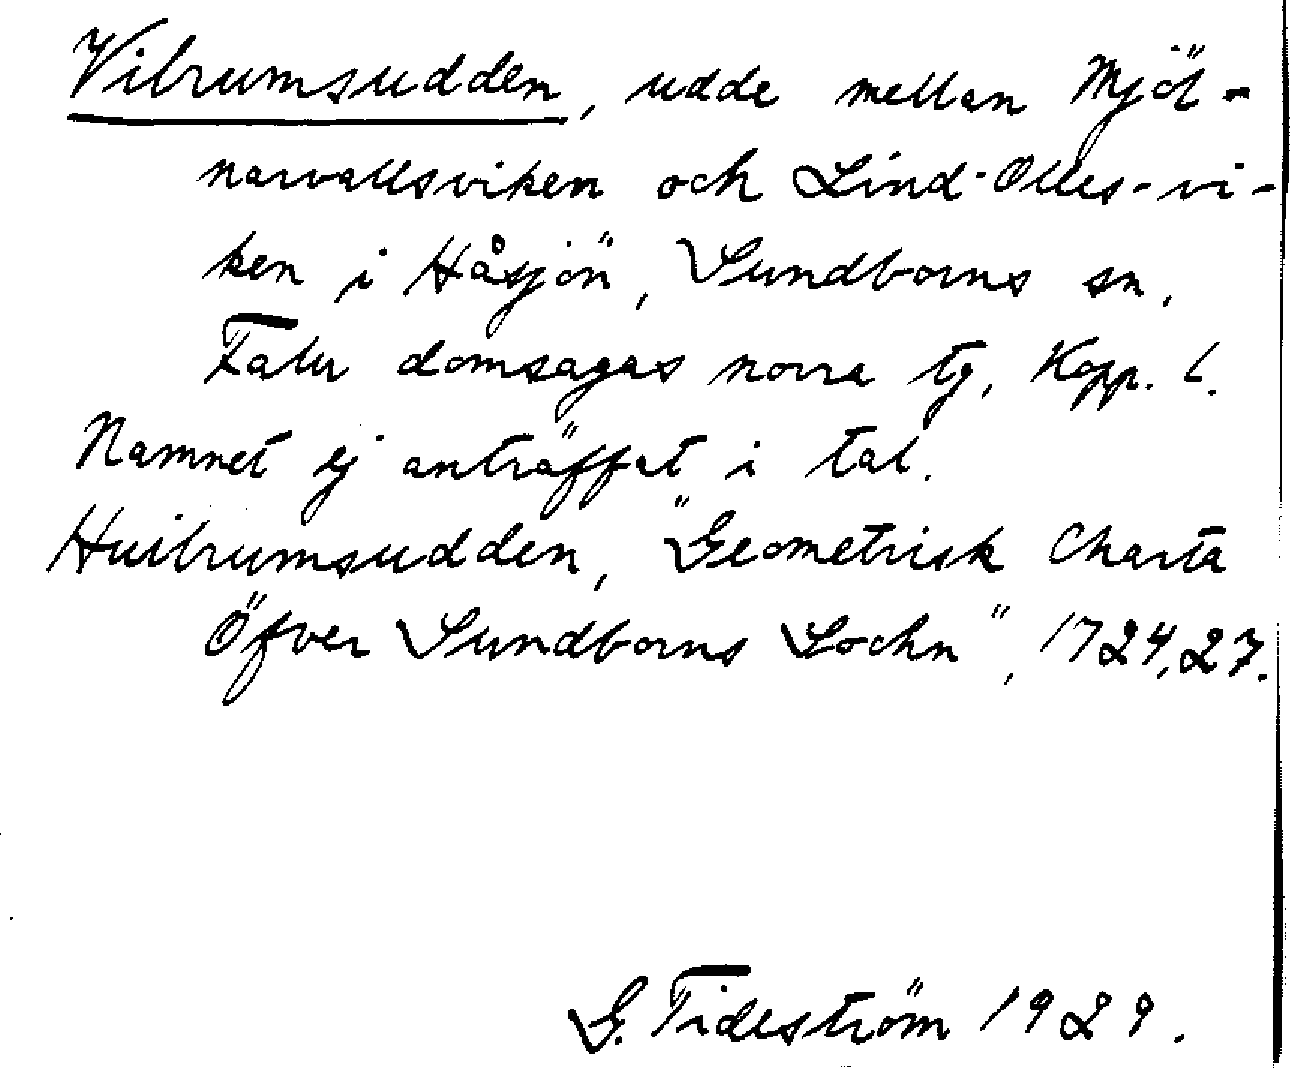 Vilrumsudden, udde mellan Mjöl-
narvallsviken och Lind-Olles-vi-
ken i Håsjön, Sundborns sn,
Falu domsagas norra tg, Kopp. l.
Namnet ej anträffat i tal.
Huilrumsudden, "Geometrisk Charta
Öfver Sundborns Sochn", 1724,27.
G. Tideström 1929.